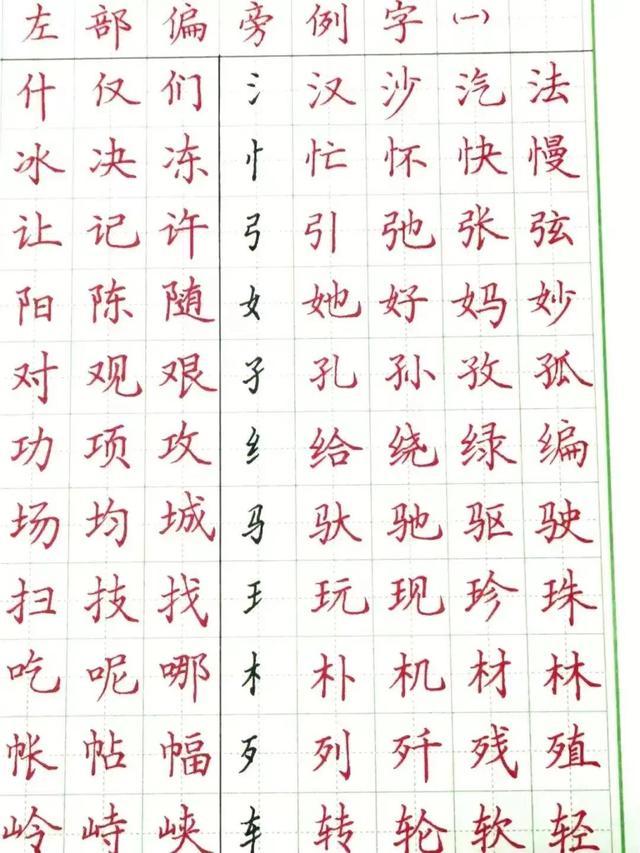 左部偏旁例字(一)
什仅们氵汉沙汽法
冰决冻忄忙怀快慢
让记许弓引弛张弦
阳陈随女她好妈妙
对观艰子孔孙孜孤
功项攻纟给绕绿编
场均城马驮驰驱驶
扫技找王玩现珍珠
吃呢哪木朴机材林
帐帖幅歹列歼残殖
岭峙峡车转轮软轻